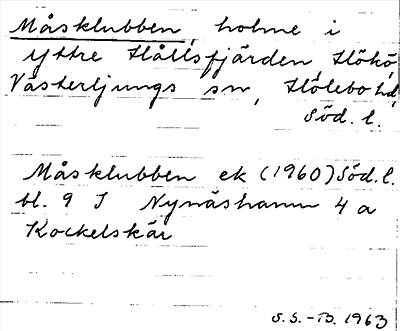 Måsklubben, holme i
yttre Hållsfjärden, Hökö,
Västerljungs sn, Hölebo hd,
Söd. l.
Måsklubben ek (1960) Söd. l.
bl. 9 I Nynäshamn 4 a
Kockelskär
S.S.-B. 1963